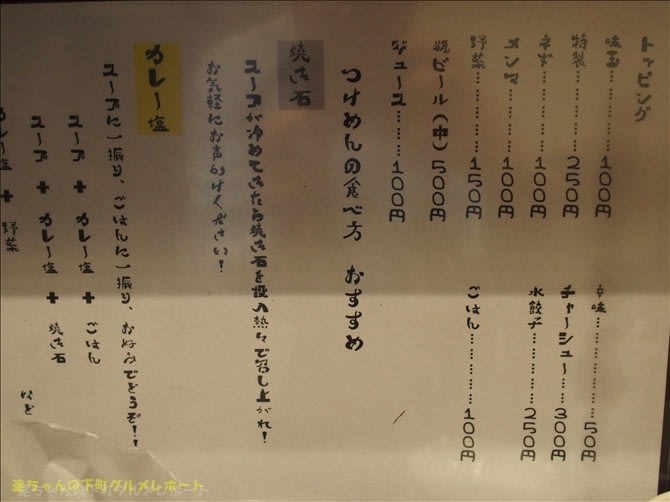 トッピング
味玉………100円
特製………250円
ネギ………100円
メンマ………100円
野菜………150円
瓶ビール(中)500円
ジュース………100円
辛味………50円
チャーシュー………300円
水餃子………250円
ごはん………100円
つけめんの食べ方 おすすめ
焼き石
スープが冷めてきたら焼き石を投入熱々で召し上がれ!
お気軽にお声がけください!
カレー塩
スープに一振り、ごはんに一振り、お好みでどうぞ!!
スープ + カレー塩 + ごはん
スープ + カレー塩 + 焼き石
カレー塩 + 野菜
など
達ちゃんの下町グルメレポート